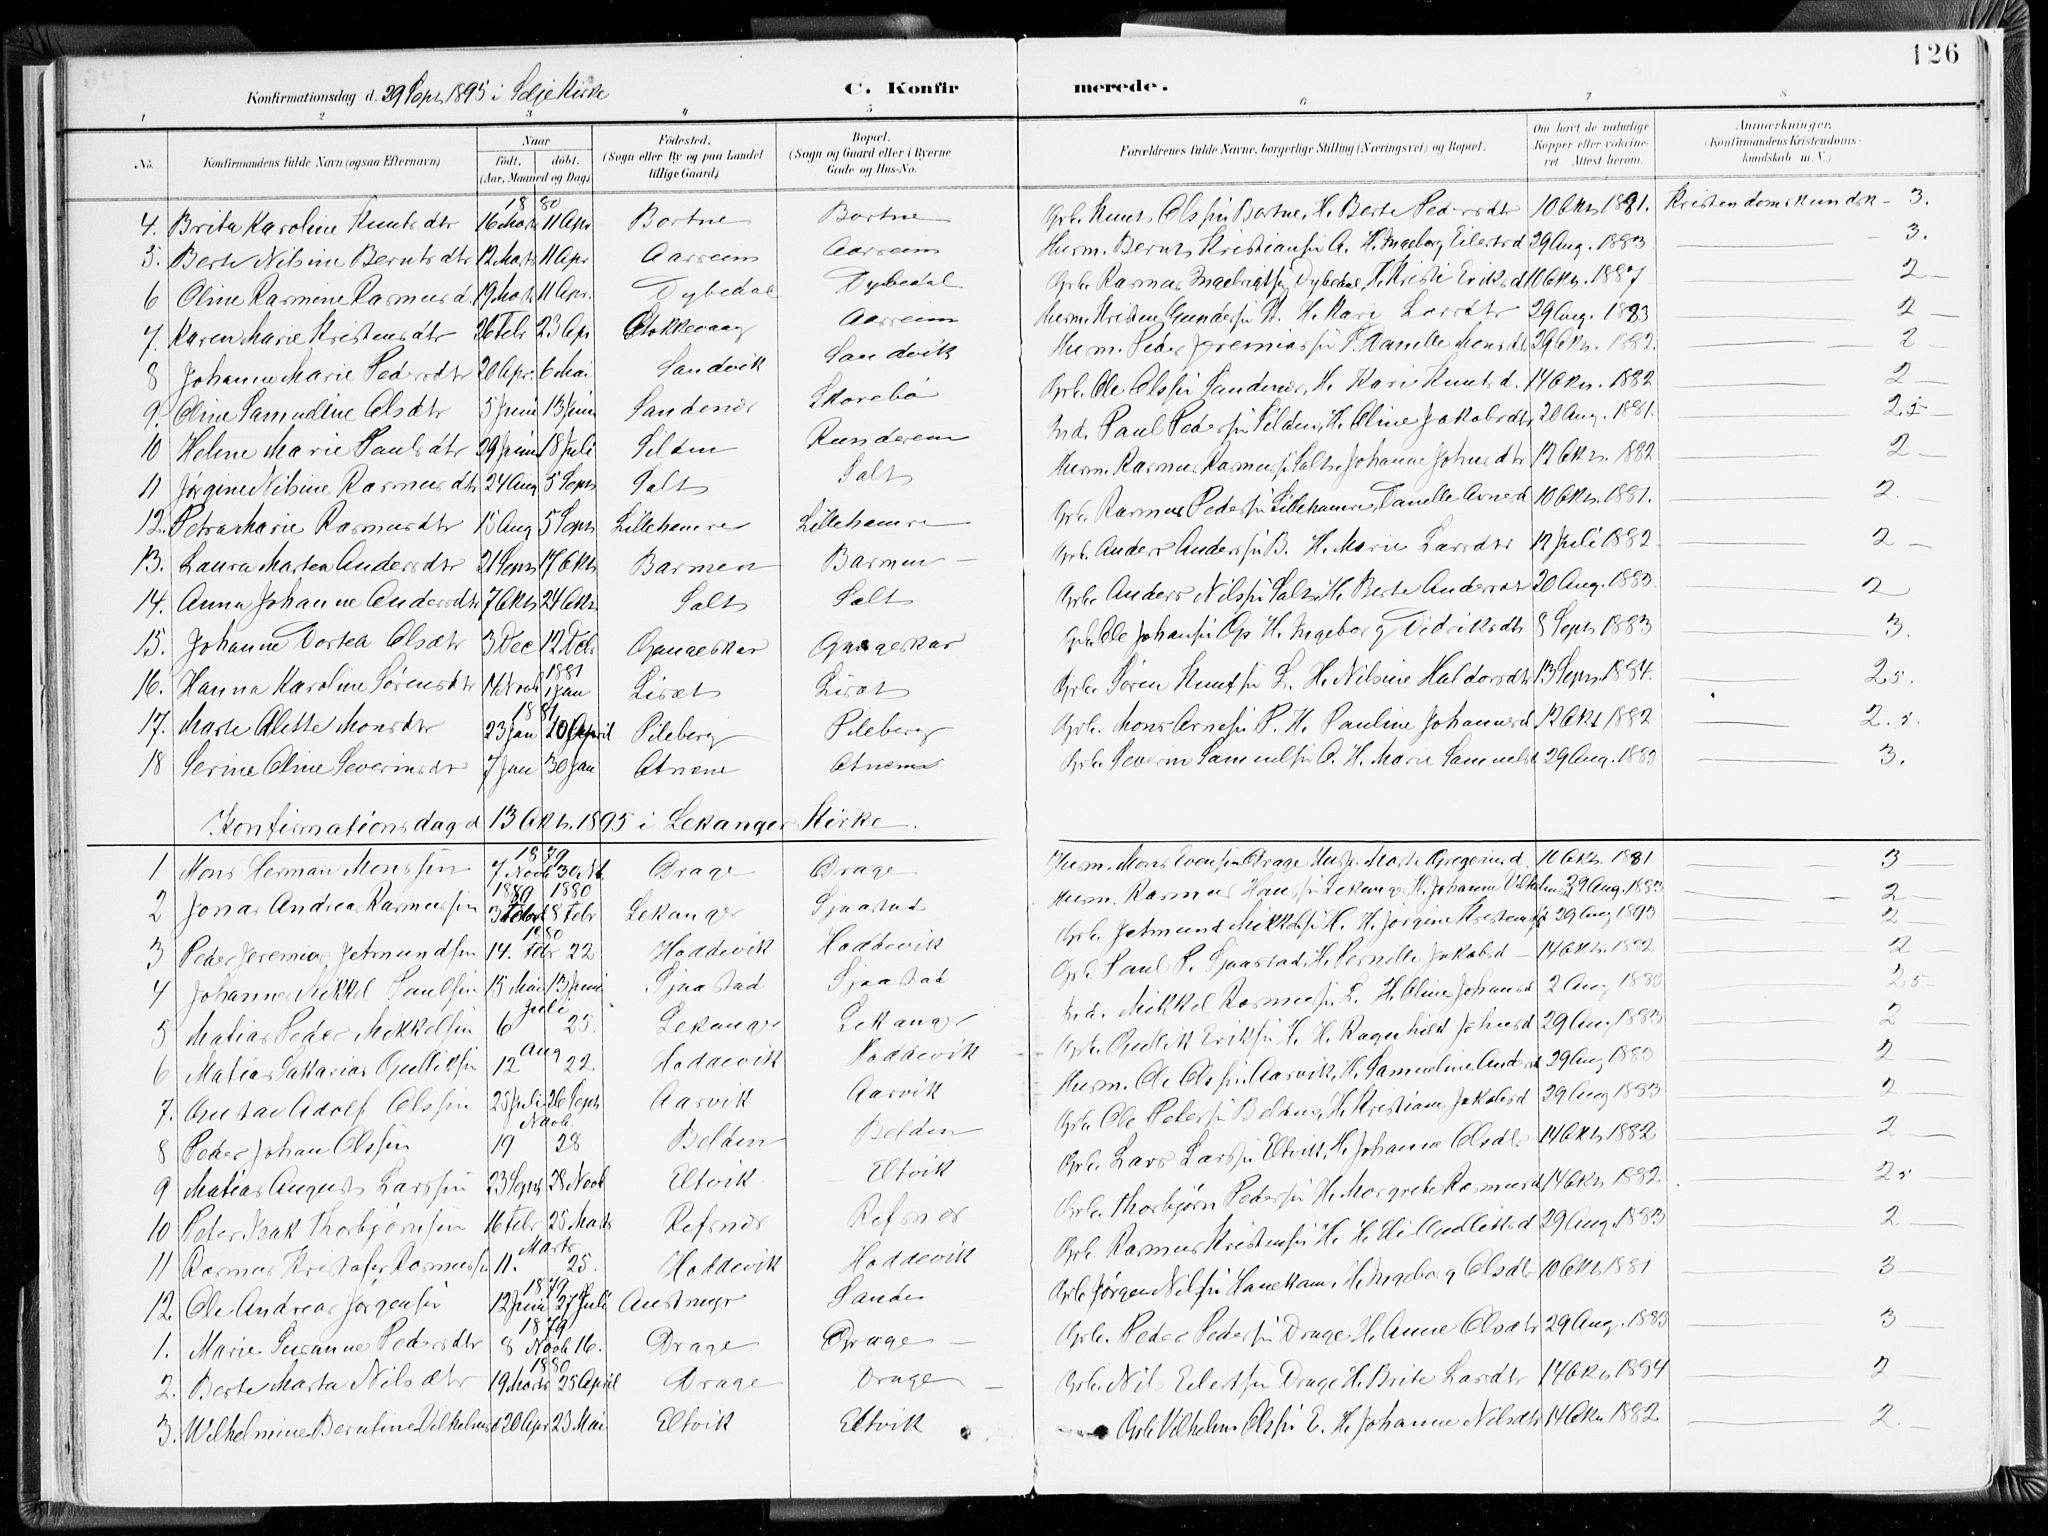 126
Konfirmationsdag d. 29 Sept 1895 i Selje Kirke C. Konfirmerede.
1 2 3 4 5 6 7 8
No. Konfirmandens fulde Navn (ogsaa Efternavn) Naar født. døbt. (Aar, Maaned og Dag) Fødested. (Sogn eller By og paa Landet tillige Gaard) Bopæl. (Sogn og Gaard eller i Byerne Gade og Hus-No. Forældrenes fulde Navne, borgerlige Stilling (Næringsvei) og Bopæl. Om havt de naturlige Kopper eller vaksineret Attest herom. Anmærkninger. (Konfirmandens Kristendomskundskab m.V.)
18 80
4. Brita Karoline Knutsdtr 16 Marts 11 Apr Bortne Bortne Grb. Knut Olssøn Bortne, H. Berte Pedersdtr 10 Okt. 1881. Kristendomskundsk - 3.
5. Berte Nilsine Berntsdtr 12 Marts 11 Apr Aarreim Aarreim Husm. Bernt Kristiansøn A. H. Ingeborg Eilertsd 29 Aug. 1883 3.
6 Oline Rasmine Rasmusd. 19 Marts 11 Apr. Dybedal Dybedal Grb. Rasmus Ingebrigtsøn Dybedal, H. Kristi Eriksd 10 Okt. 1887 2
7. Karen Marie Kristensdtr 26 Febr 23 Apr Stokkevaag Aarreim Husm. Kristen Gundersøn H. Kari Larsdtr 29 Aug. 1883 2
8 Johanne Marie Pedersdtr 20 Apr. 6 Mai Sandvik Sandvik Husm. Peder Jeremiassøn Pernelle Monsdt 29 Okt. 1882. 2
9. Oline Samueline Olsdtr 5 Juni 13 Juni Sandenær Skorebø Grb. Ole Olssøn Sandenær, H. Kari Knutsd. 14 Okt. 1882 2
10 Helene Marie Paulsdtr 29 Juni 18 Juli Silden Runderein Ind. Paul Pedersøn Silden, H. Oline Jakobsdtr 20 Aug. 1881. 2.5
11 Jørgine Nilsine Rasmusdtr 24 Aug 5 Sept Salt Salt Husm. Rasmus Rasmussøn Salt, Johanne Johnsdtr 12 Okt. 1882 2
12. Petra Marie Rasmusdtr 15 Aug 5 Sept Lillehamre Lillehamre Grb. Rasmus Pedersøn Lillehamre, Danelle Arnesd 10 Okt. 1881. 2.
13. Laura Martea Andersdtr 21 Sept 17 Okt Barmen Barmen Grb. Anders Anderssøn B. H. Marie Larsdtr 12 Juli 1882. 2
14. Anna Johanne Andersdtr 7 Okt 24 Okt Salt Salt Grb. Anders Nilssøn Salt, H. Berte Andersdtr 20 Aug. 1883. 2
15. Johanne Dortea Olsdtr 3 Dec 12 Febr Gangeskar Gangeskar Grb. Ole Johansøn Gs H. Ingeborg Didriksdtr 8 Sept 1883 3.
1881
16. Hanna Karoline Sørensdtr 14 Novb 1 Jan Liset Liset Grb. Søren Knutsøn L. H. Nilsine Haldorsdtr 13 Sept. 1884. 2.5.
18 81
17. Marte Olette Monsdtr 23 Jan 20 April Pileberg Pileberg Grb. Mons Arnesøn P. H. Pauline Johannesd 12 Okt 1882 2.5.
18 Serine Oline Severinsdtr 7 Jan 30 Jan Otnem Otnem Grb. Severin Samuelsøn O. H. Marie Samuelsd 29 Aug. 1883 3.
Konfirmationsdag d 13 Okt. 1895 i Lekanger Kirke.
1879
1 Mons Herman Monssøn 7 Novb 30 Nb. Drage Drage Husm. Mons Evensøn Drage Hustr. Marte Gregoriusd. 10 Okt. 1881 3
1880 1880
2 Jonas Andreas Rasmussøn 3 Febr 8 Febr Lekanger Sjaastad Husm. Rasmus Hanssøn Lekanger H. Johanne Vilhelmsd 29 Aug. 1883 2
1880
3 Peder Jeremias Jetmundsøn 14. Febr 22 Hoddevik Hoddevik Grb. Jetmund Mikkelsøn H. H. Jørgine Kristensd 29 Aug 1893 2
4 Johannes Mikkel Paulsøn 15 Mai 13 Juni Sjaastad Sjaastad Grb. Paul P. Sjaastad, H. Pernille Jakobsd 14 Okt. 1882 2
Juli
5 Matias Peder Mikkelsøn 6 25. Lekanger Lekanger Ind. Mikkel Rasmussøn L. H. Oline Johansd 2 Aug 1883 25
Aug
6 Matias Sakarias Gulliksøn 12 22 Hoddevik Hoddevik Grb. Gullik Eriksøn H. H. Ragnhild Johnsd 29 Aug 1883 2
7. Gustav Adolf Olssøn 25 Juli 26 Sept Aarvik Aarvik Husm. Ole Olssøn Aarvik, H. Samueline Andersd 29 Aug 1883 2
Novb.
8 Peder Johan Olssøn 19 28 Belden Belden Grb. Ole Petersøn Belden, H. Kristiane Jakobsd 29 Aug 1883 2
9 Matias August Larssøn 23 Sept 28 Novb Eltvik Eltvik Grb. Lars Larssøn Eltvik, H. Johanne Olsdtr 14 Okt 1882 2
10 Peter Isak Thorbjørnsøn 16 Febr 25 Marts Refsnes Refsnes Grb. Thorbjørn Pedersøn H. Margrete Rasmusd 14 Okt 1882 25
Marts
11 Rasmus Kristofer Rasmussøn 11. 25. Hoddevik Hoddevik Grb. Rasmus Kristensøn H. H. Gulliksd 29 Aug. 1883 2
1879
12. Ole Andreas Jørgensøn 12 Juni 27 Juli Austmyr Sande Grb. Jørgen Nilsøn Hanekam, H. Ingeborg Olsdtr 10 Okt 1881 3
1879
1. Marie Susanne Pedersdtr 8 Novb 16. Drage Drage Grb. Peder Pedersøn Drage H. Anne Olsdtr 29 Aug. 1883 3
1880
2. Berte Marta Nilsdtr 19 Marts 25 April Drage Drage Grb. Nils Eilertsøn Drage H. Brite Larsdtr 14 Okt 1884 2
3. Wilhelmine Berntine Vilhelmsd 20 Apr 23 Mai Eltvik Eltvik Grb Vilhelm Olssøn E. H. Johanne Nilsdtr 14 Okt 1882 2.